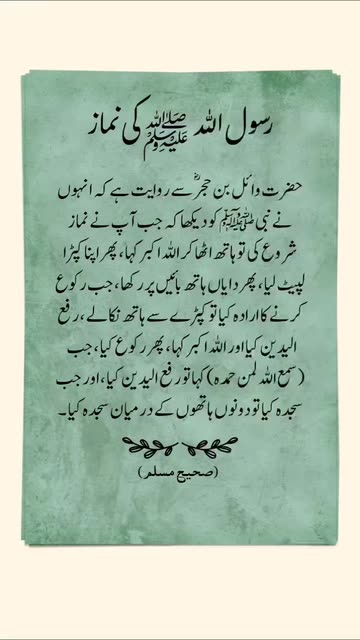 رسول اللہ ﷺ کی نماز
حضرت وائل بن حجرؓ سے روایت ہے کہ انہوں
نے نبی ﷺ کو دیکھا کہ جب آپ نے نماز
شروع کی تو ہاتھ اٹھا کر اللہ اکبر کہا، پھر اپنا کپڑا
لپیٹ لیا، پھر دایاں ہاتھ بائیں پر رکھا، جب رکوع
کرنے کا ارادہ کیا تو کپڑے سے ہاتھ نکالے، رفع
الیدین کیا اور اللہ اکبر کہا، پھر رکوع کیا، جب
(سمع اللہ لمن حمدہ) کہا تو رفع الیدین کیا، اور جب
سجدہ کیا تو دونوں ہاتھوں کے درمیان سجدہ کیا۔
(صحیح مسلم)